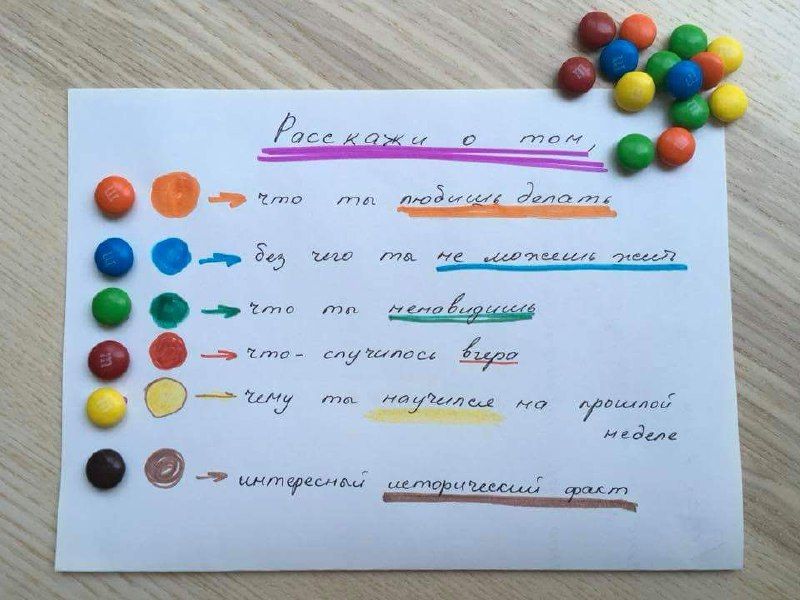 Расскажи о том,
что ты любишь делать
без чего ты не можешь жить
что ты ненавидишь
что-случилось вчера
чему ты научился на прошлой
неделе
интересный исторический факт